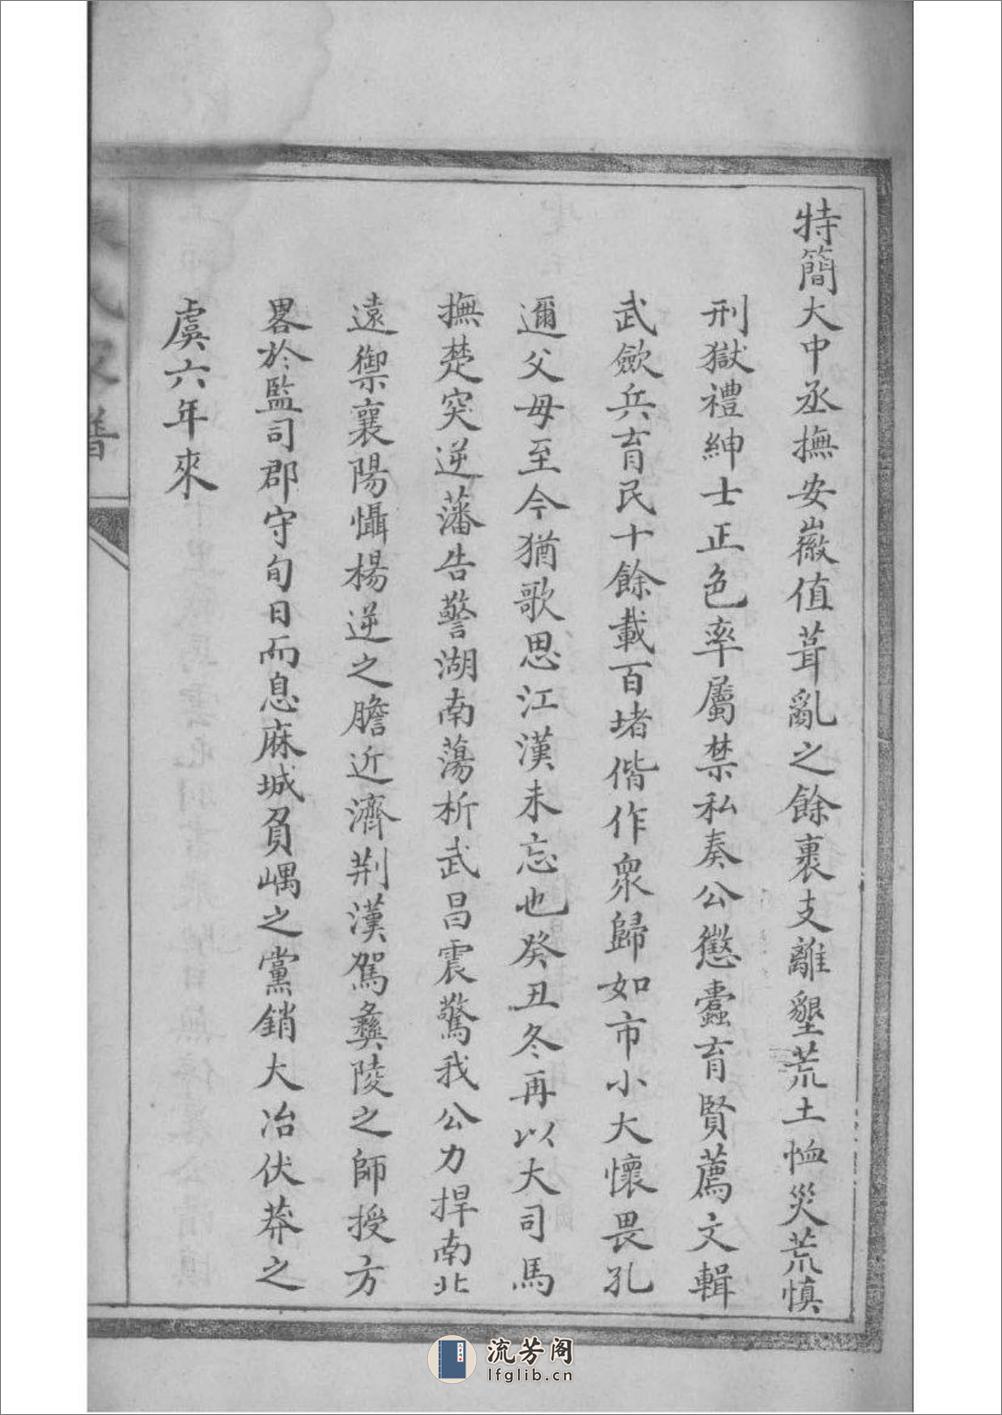 特簡大中丞撫安徽值葺亂之餘裹支離墾荒土恤災荒慎
刑獄禮紳士正色率屬禁私奏公懲蠹育賢薦文輯
武歛兵育民十餘載百堵偕作衆歸如市小大懷畏孔
邇父母至今猶歌思江漢未忘也癸丑冬再以大司馬
撫楚突逆藩告警湖南蕩析武昌震驚我公力捍南北
遠禦襄陽懾楊逆之膽近濟荆漢駕彝陵之師授方
畧於監司郡守旬日而息麻城負嵎之黨銷大冶伏莽之
虞六年來
氏家譜
流芳阁
lfglib.cn